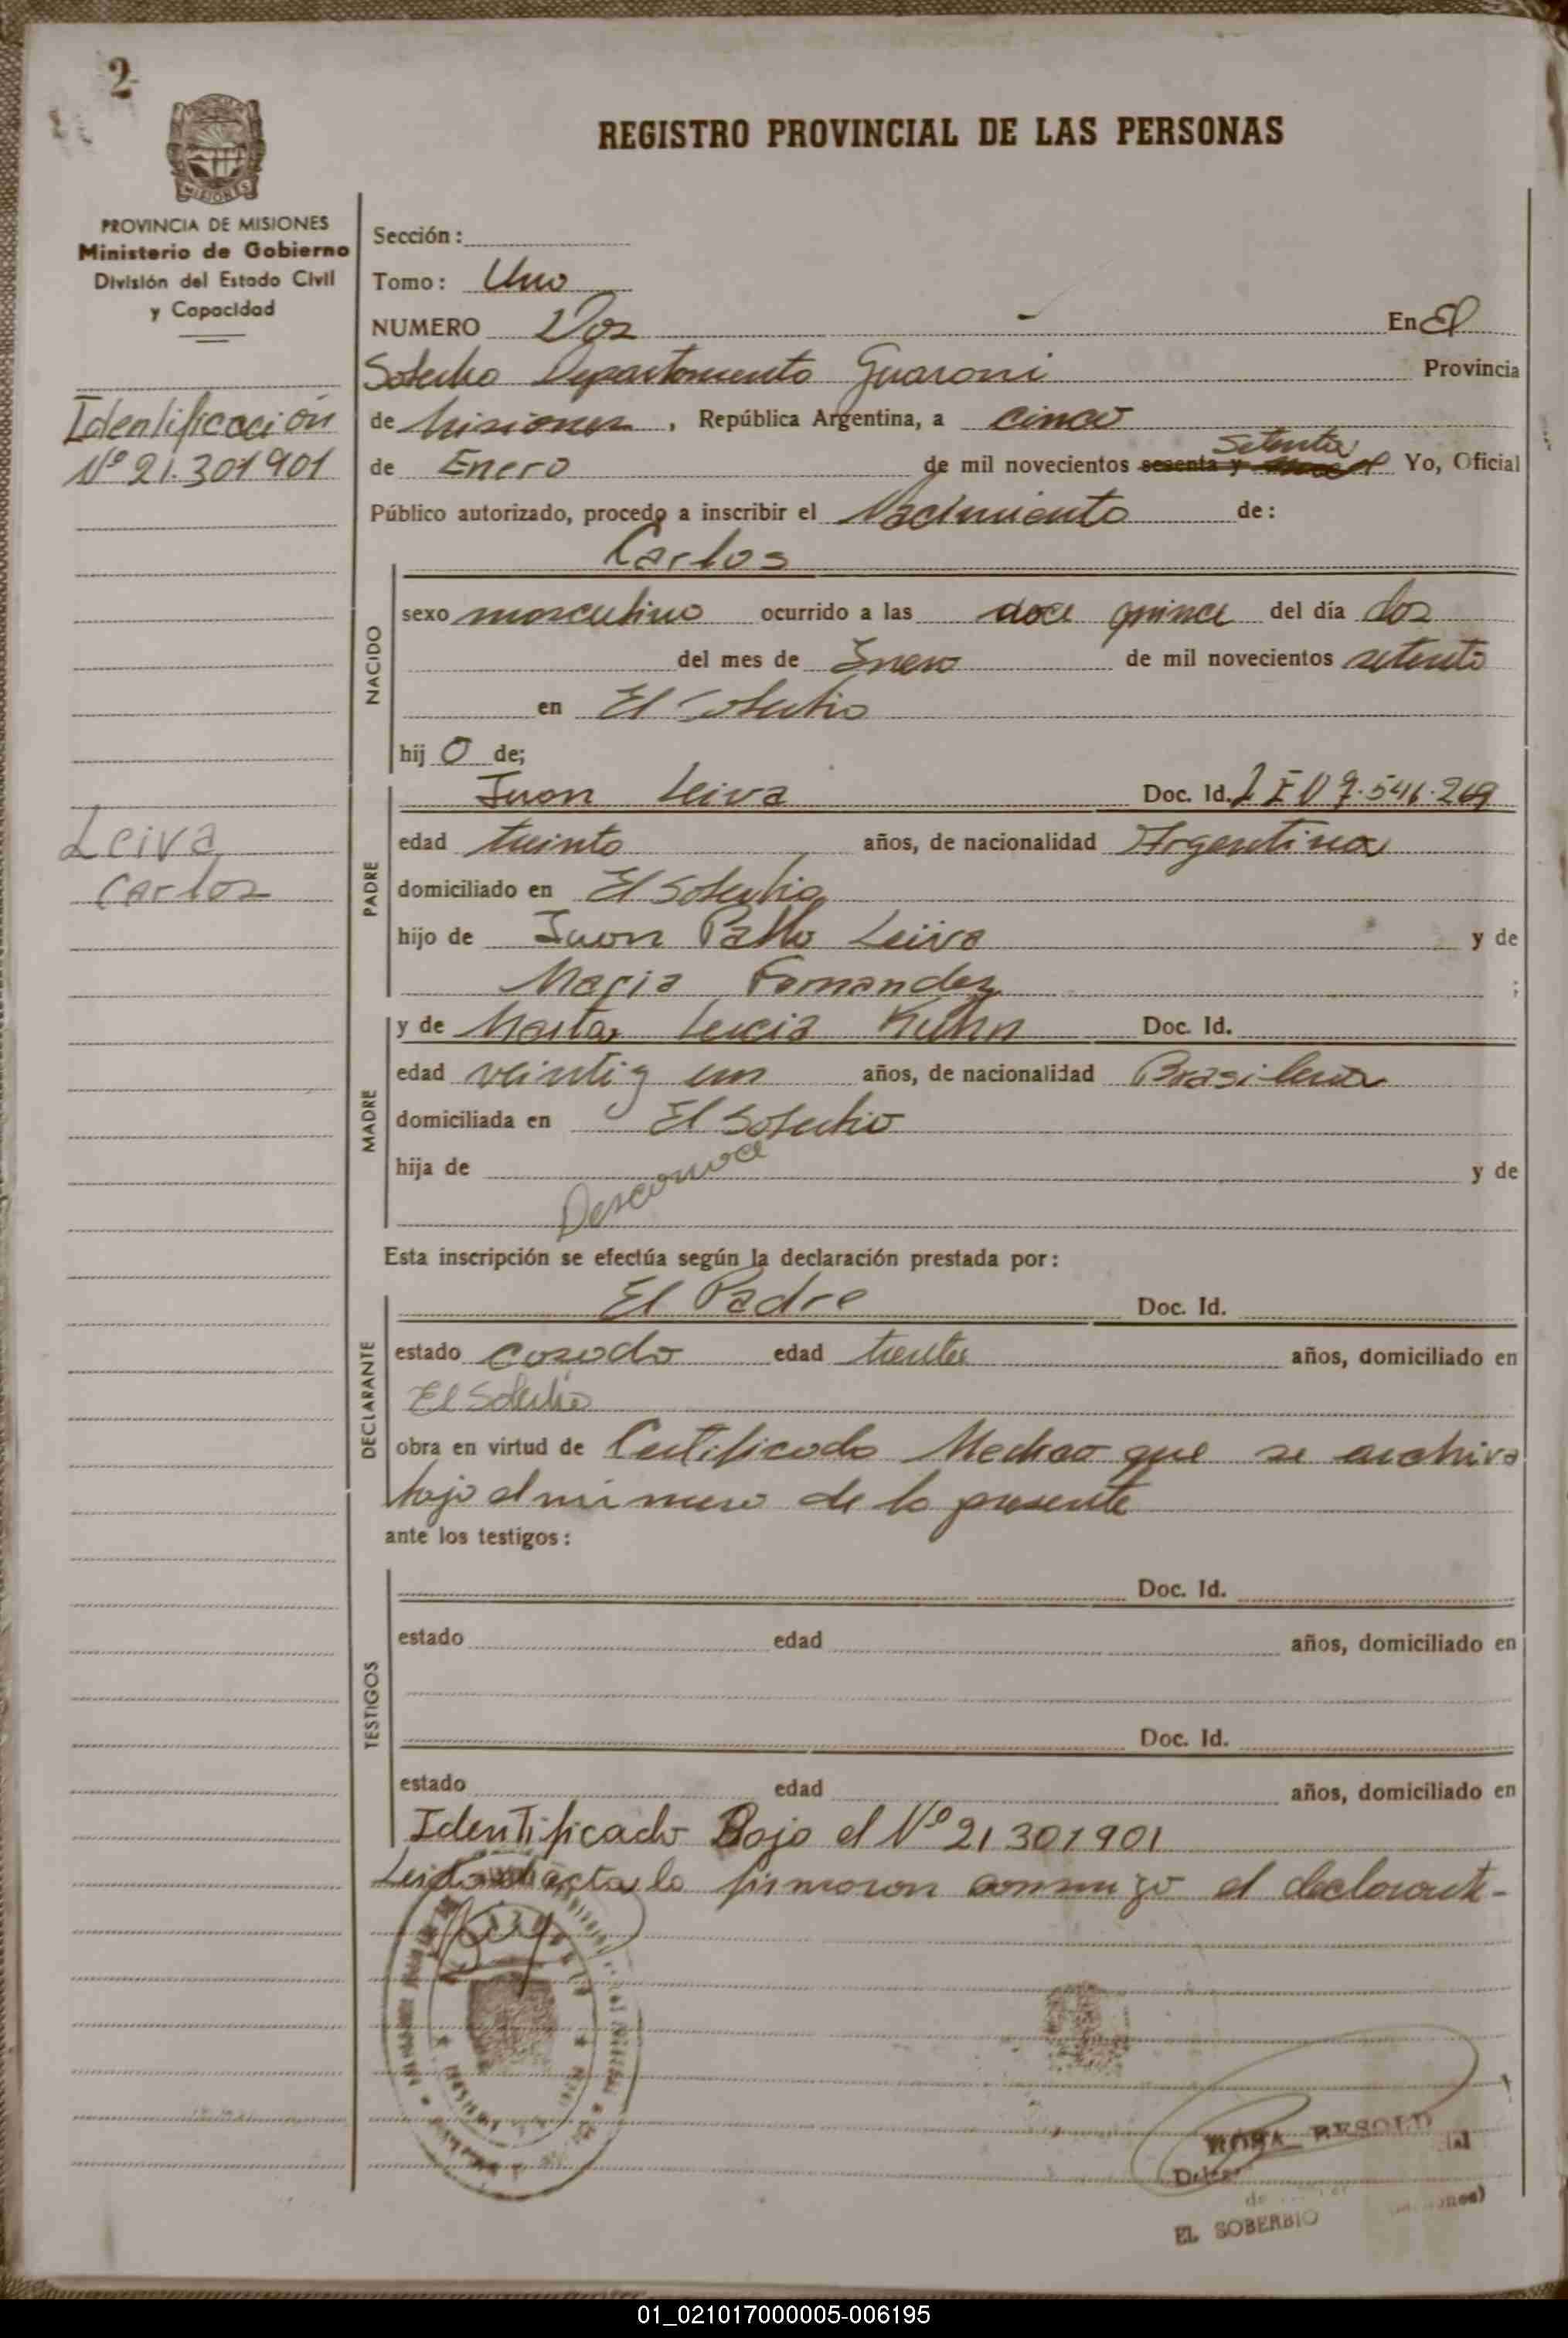 2
REGISTRO PROVINCIAL DE LAS PERSONAS
MISIONES
PROVINCIA DE MISIONES
Ministerio de Gobierno
División del Estado Civil
y Capacidad
Identificación
Nº 21.301901
Leiva
Carlos
Sección:
Tomo: Uno
NUMERO Dos En El
Soberbio Departamento Guarani Provincia
de Misiones, República Argentina, a cinco
Setenta
de Enero de mil novecientos sesenta y Yo, Oficial
Público autorizado, procedo a inscribir el Nacimiento de:
Carlos
NACIDO
sexo masculino ocurrido a las doce quince del día dos
del mes de Enero de mil novecientos setenta
en El Soberbio
hij o de;
PADRE
Juan Leiva Doc. Id. 7.546.269
edad treinta años, de nacionalidad Argentina
domiciliado en El Soberbio
hijo de Juan Pablo Leiva y de
Maria Fernandez ;
MADRE
y de Maria Lucia Kuhn Doc. Id.
edad veinti y un años, de nacionalidad Brasilera
domiciliada en El Soberbio
hija de Desconoce y de
Esta inscripción se efectúa según la declaración prestada por:
DECLARANTE
El Padre Doc. Id.
estado casado edad treinta años, domiciliado en
El Soberbio
obra en virtud de Certificado Medico que se archiva
bajo el numero de la presente
ante los testigos:
TESTIGOS
Doc. Id.
estado edad años, domiciliado en
Doc. Id.
estado edad años, domiciliado en
Identificado Bajo el Nº 21 301901
Leida acta la firmaron conmigo el declarante-
EL SOBERBIO
01_021017000005-006195